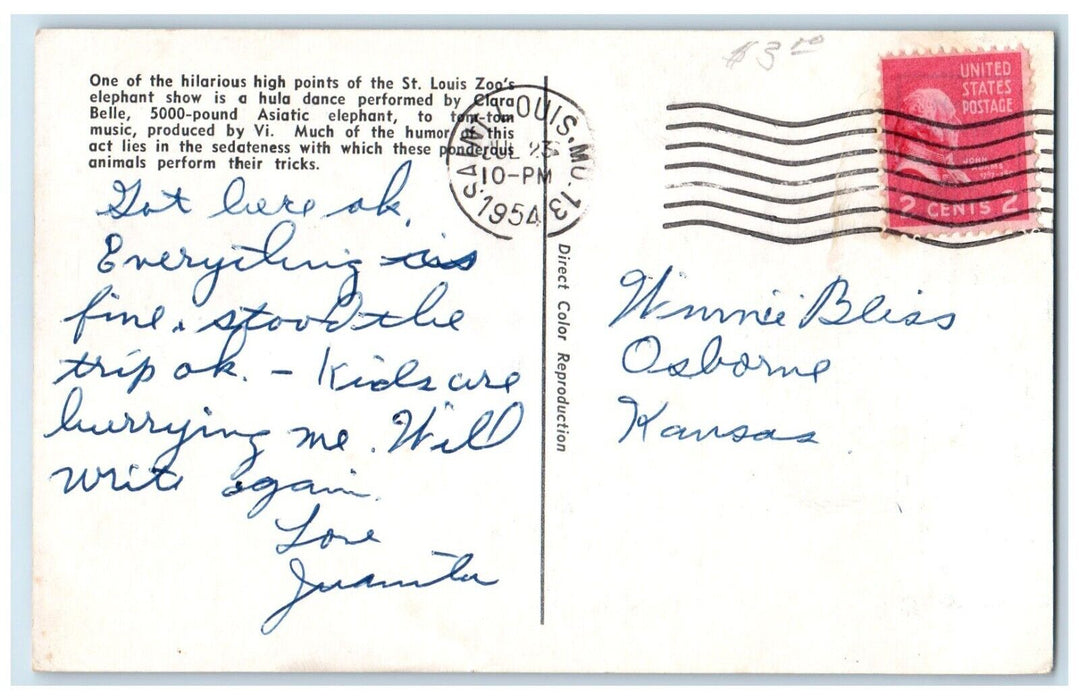 $3.00
UNITED
STATES
POSTAGE
JOHN
ADAMS
2 CENTS 2
One of the hilarious high points of the St. Louis Zoo's
elephant show is a hula dance performed by Clara
Belle, 5000-pound Asiatic elephant, to tom-tom
music, produced by Vi. Much of the humor in this
act lies in the sedateness with which these ponderous
animals perform their tricks.
SAINT LOUIS, MO. 13
JUL 23
10-PM
1954
Got here ok.
Everything is
fine. stood the
trip ok. - Kids are
hurrying me. Will
write again.
Love
Juanita
Direct Color Reproduction
Winnie Bliss
Osborne
Kansas